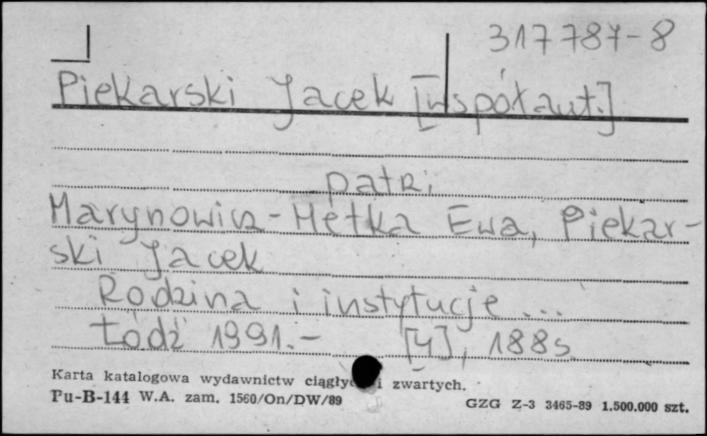 317787-8
Piekarski Jacek [współaut.]
patrz
Marynowicz-Hetka Ewa, Piekar-
ski Jacek
Rodzina i instytucje ...
Łódź 1991.- [4], 188s
Karta katalogowa wydawnictw ciągłyc i zwartych.
Pu-B-144 W.A. zam. 1560/On/DW/89
GZG Z-3 3465-89 1.500.000 szt.